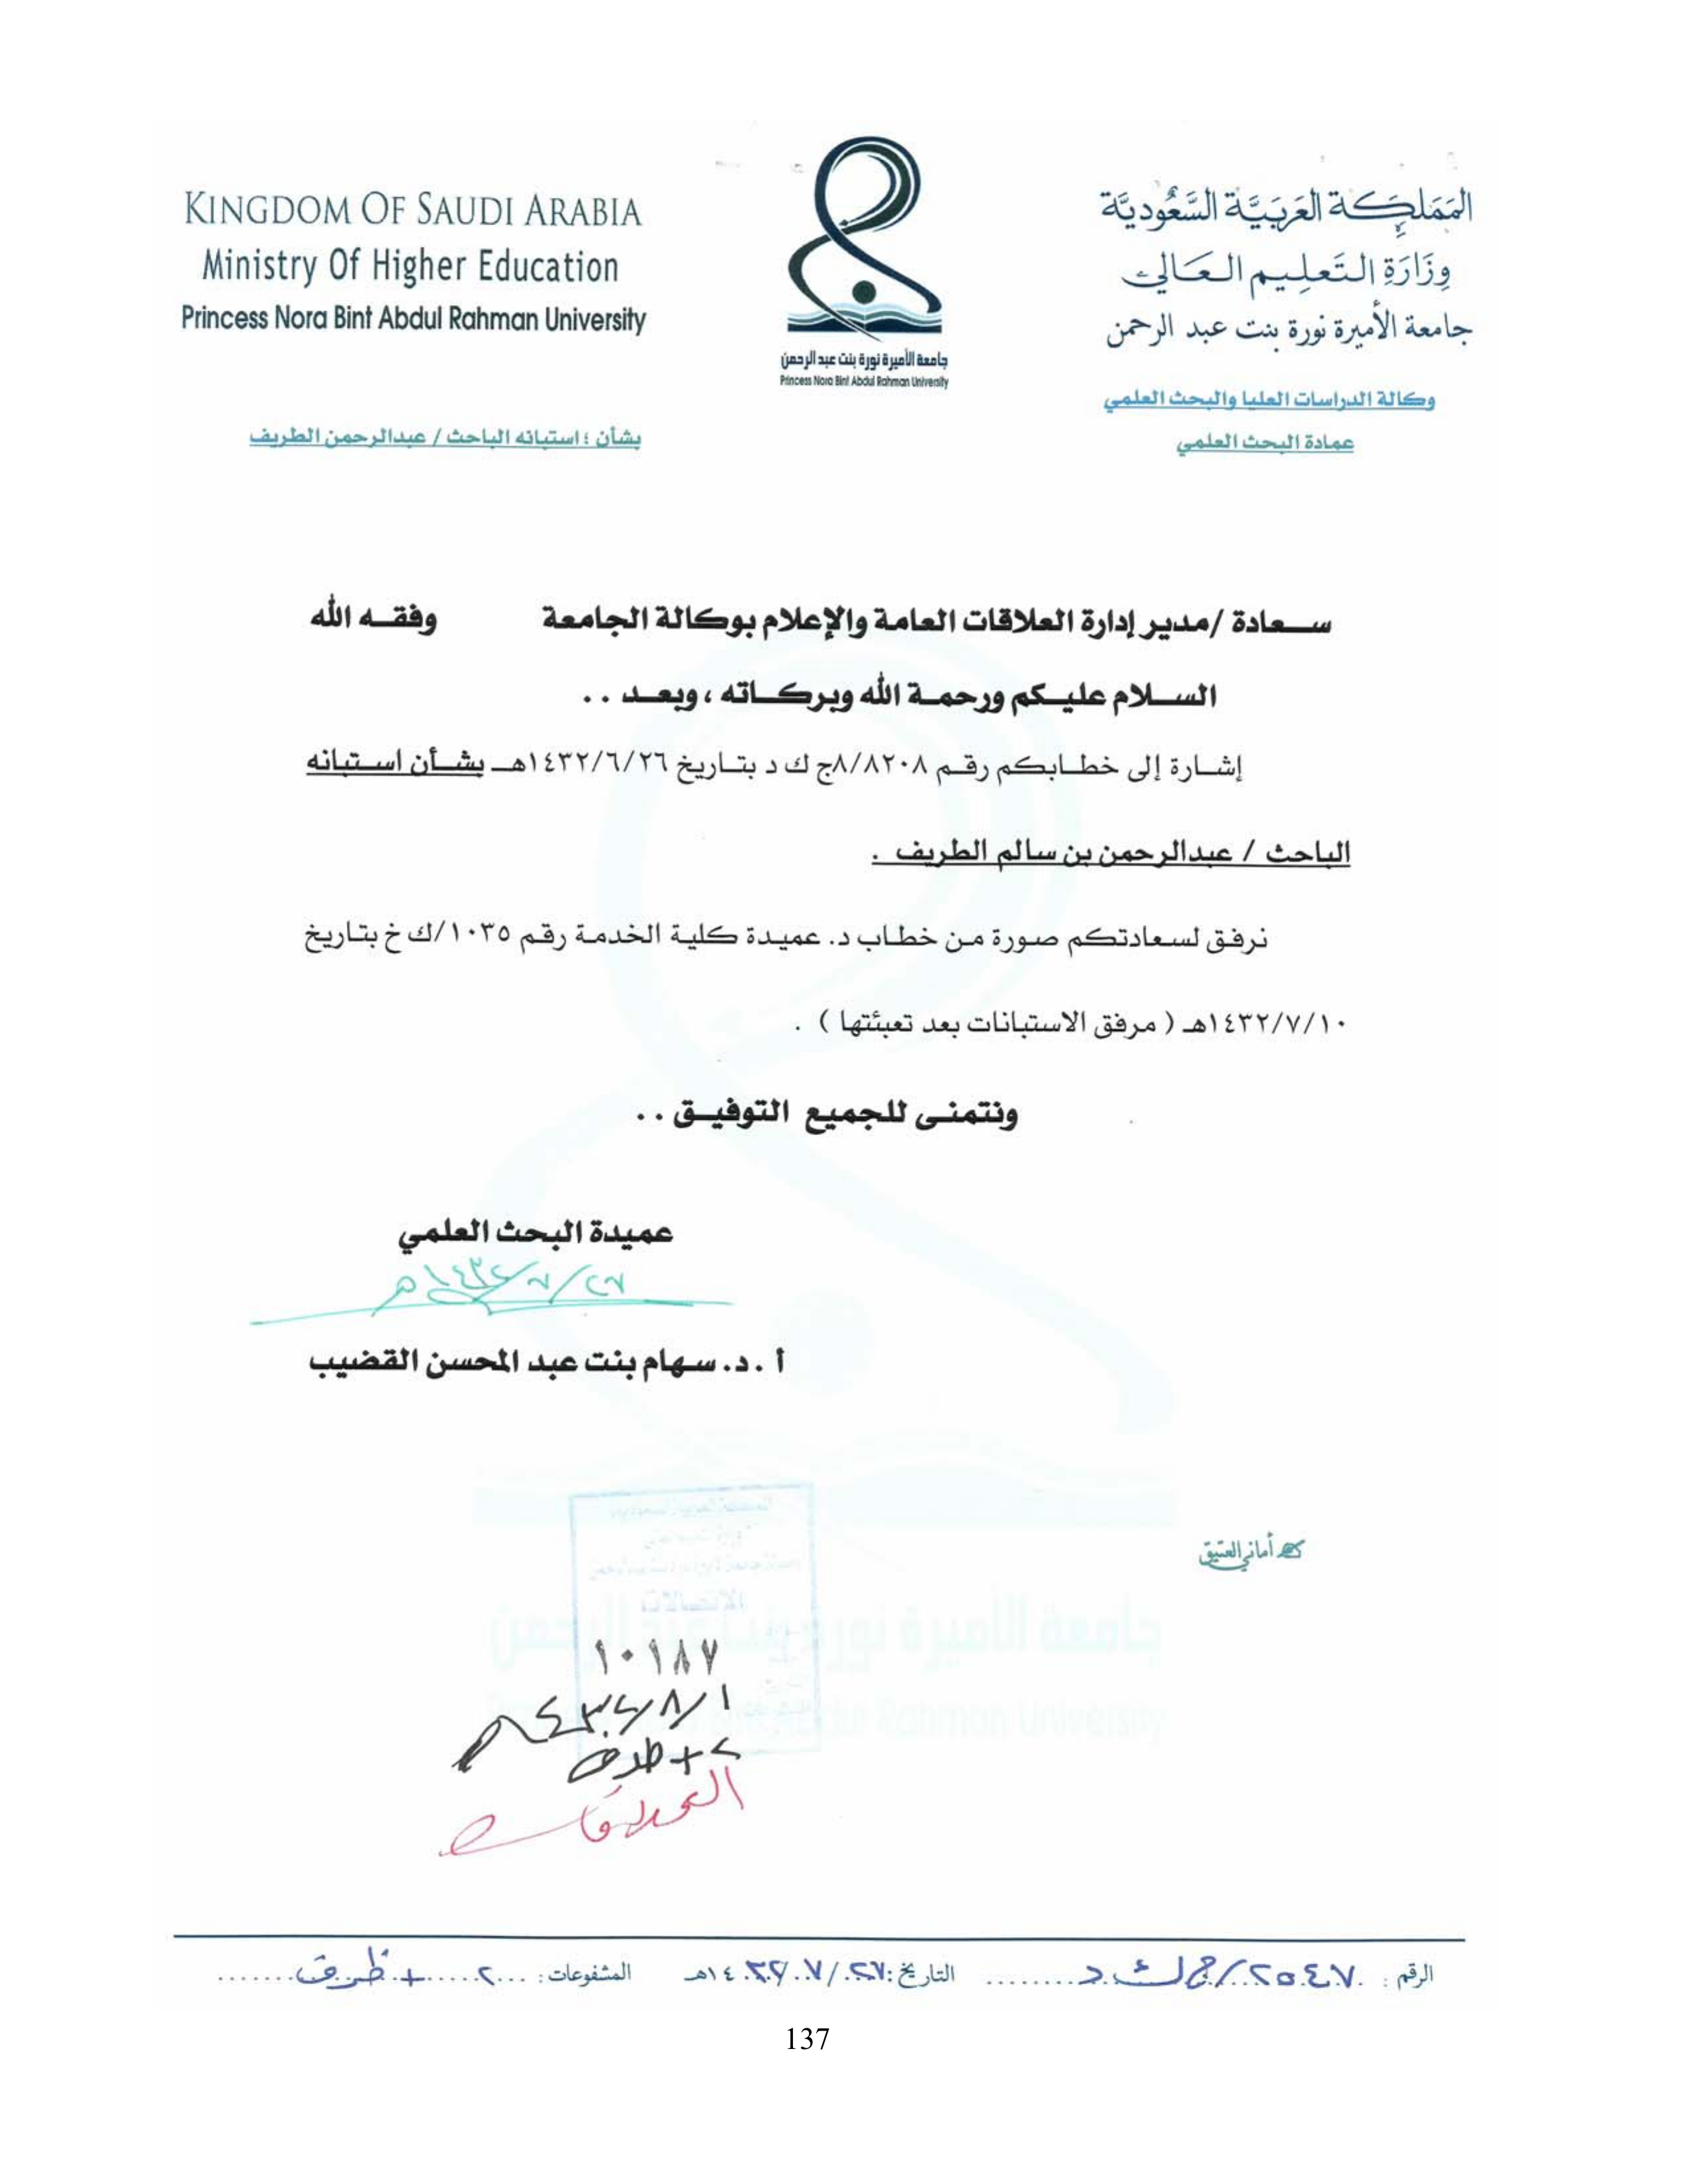 KINGDOM OF SAUDI ARABIA
Ministry Of Higher Education
Princess Nora Bint Abdul Rahman University
جامعة الأميرة نورة بنت عبد الرحمن
Princess Nora Bint Abdul Rahman University
المَملكة العَربيَّة السَّعُوديَّة
وِزَارَةِ التَعلِيم العَالي
جامعة الأميرة نورة بنت عبد الرحمن
وكالة الدراسات العليا والبحث العلمي
عمادة البحث العلمي
بشأن : استبانه الباحث / عبدالرحمن الطريف
ســعادة /مدير إدارة العلاقات العامة والإعلام بوكالة الجامعة وفقــه الله
الســلام عليــكم ورحمــة الله وبركــاته ، وبعــد . .
إشــارة إلى خطــابكم رقــم ٨/٨٢٠٨ج ك د بتــاريخ ١٤٣٢/٦/٢٦هــ بشــأن اســتبانه
الباحث / عبدالرحمن بن سالم الطريف .
نرفق لسعادتكم صورة من خطاب د. عميدة كلية الخدمة رقم ١٠٣٥/ك خ بتاريخ
١٤٣٢/٧/١٠هـ ( مرفق الاستبانات بعد تعبئتها ) .
ونتمنى للجميع التوفيــق . .
عميدة البحث العلمي
١٤٣٢/٧/٢٧هـ
أ . د. سهام بنت عبد المحسن القضيب
أماني العتيق
جامعة الأميرة نورة بنت عبد الرحمن
١٠١٨٧
٤٣٢/٨/١هـ
٢ + ظرف
العلاقات
الرقم : ٢٥٤٧/ج ك د التاريخ : ٢٧/٧/١٤٣٢هـ المشفوعات : ٢ + ظرف
137